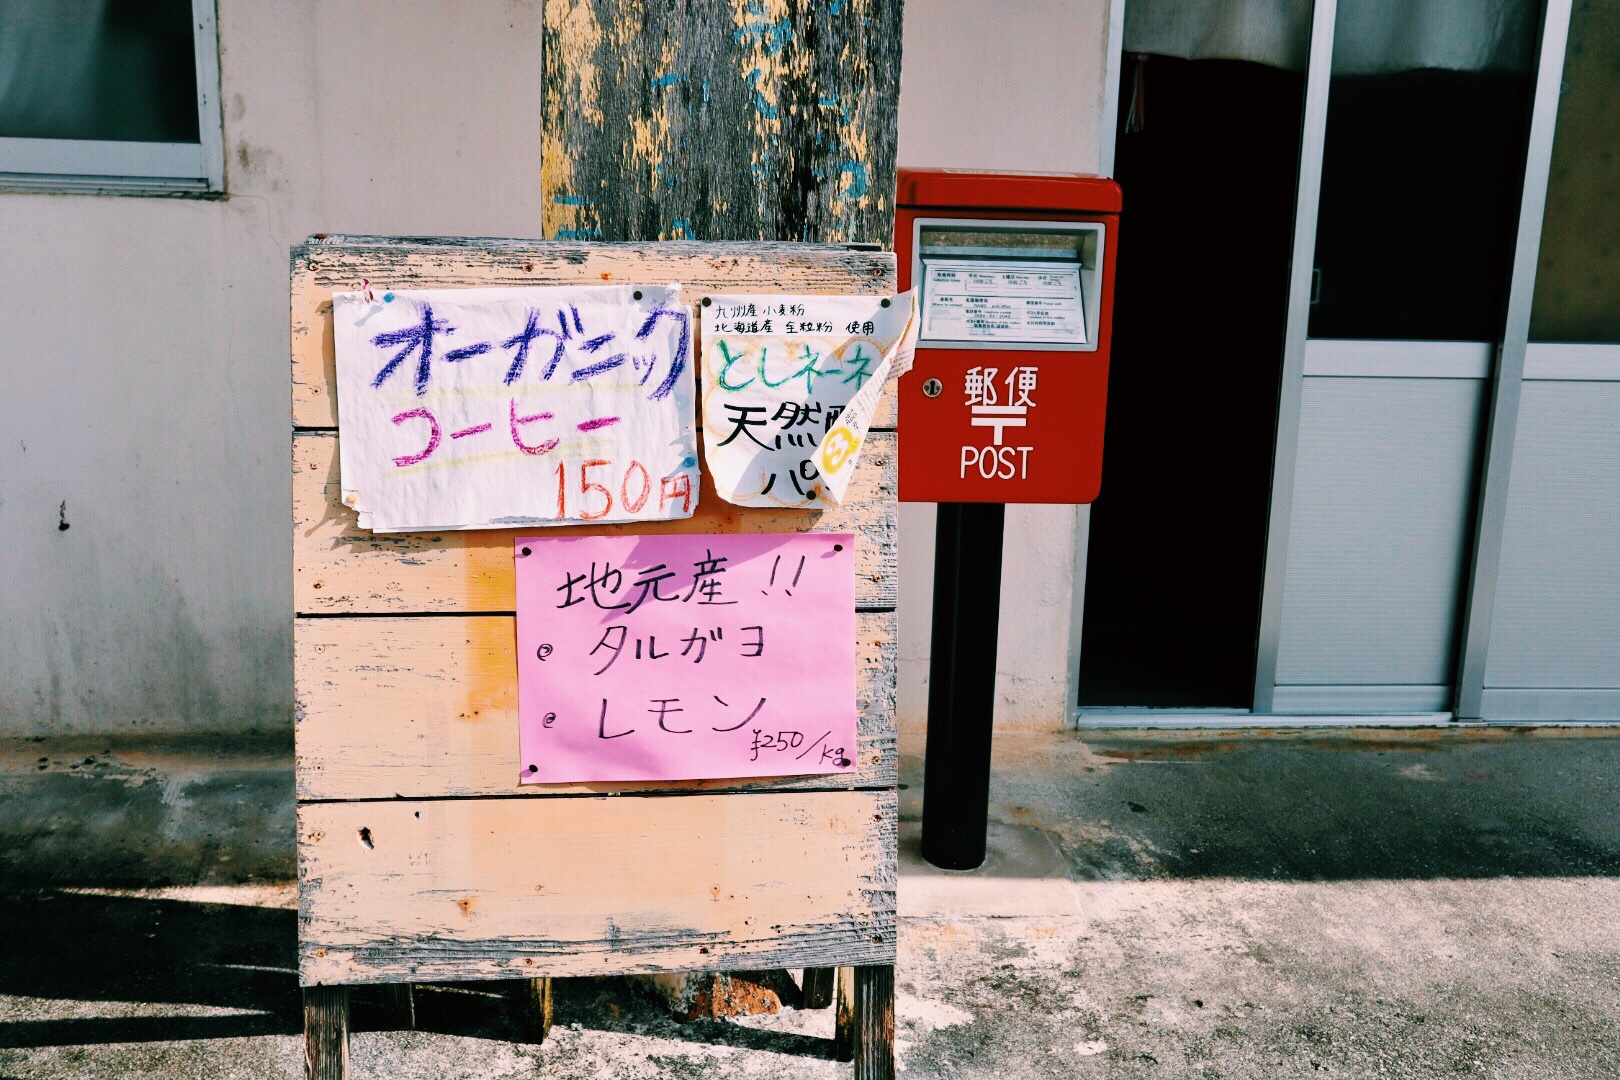 オーガニック
コーヒー
150円
九州産 小麦粉
北海道産 全粒粉 使用
としネーネ
天然
パ
地元産!!
タルガヨ
レモン
¥250/kg
郵便
〒
POST